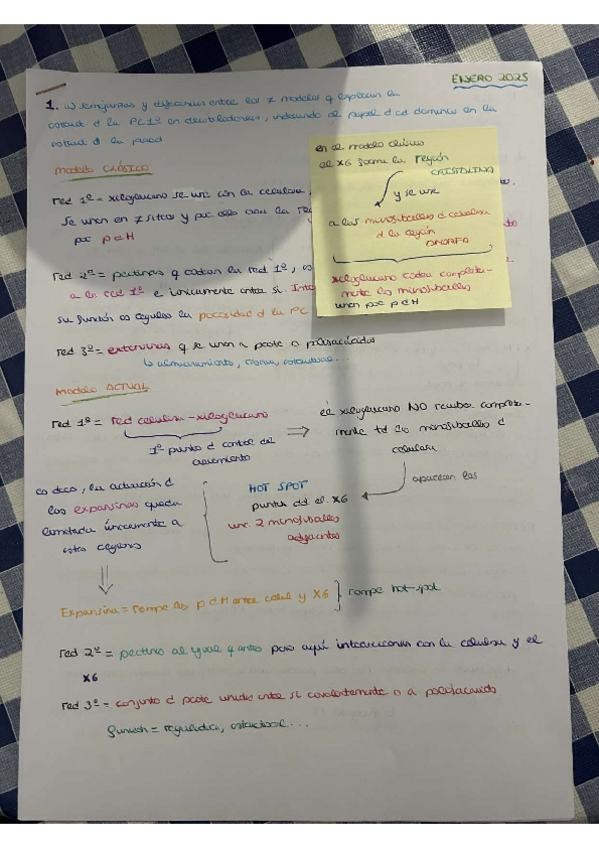 ENERO 2025
1. a) Semejanzas y diferencias entre los ≠ modelos q explican la
estruct d la PC 1º en dicotiledoneas, indicando el papel d cd dominio en la
estruct d la pared
MODELO CLÁSICO
red 1º = xiloglucano se une con la celulosa
se unen en ≠ sitios y por ello
por p d H
red 2º = pectinas q rodean la red 1º,
a la red 1º e únicamente entre sí.
su función es regular la porosidad d la PC
red 3º = extensinas q se unen a prote o polisacáridos
en el modelo clásico
el XG forma la región
CRISTALINA
y se une
a las microfibrillas d celulosa
d la región
AMORFA
xiloglucano rodea completa-
mente las microfibrillas
unión por p d H
MODELO ACTUAL
red 1º = red celulosa-xiloglucano
1º punto d control del
crecimiento
el xiloglucano NO recubre completa-
mente td las microfibrillas d
celulosa
aparecen los
HOT SPOT
puntos dd el XG
une 2 microfibrillas
adyacentes
es decir, la actuación d
las expansinas queda
limitada únicamente a
estas regiones
Expansina = rompe los p d H entre celul y XG } rompe hot-spot
red 2º = pectinas al igual q antes pero aquí interaccionan con la celulosa y el
XG
red 3º = conjunto d prote unidas entre si covalentemente o a polisacarido
función = reguladora, estructural...